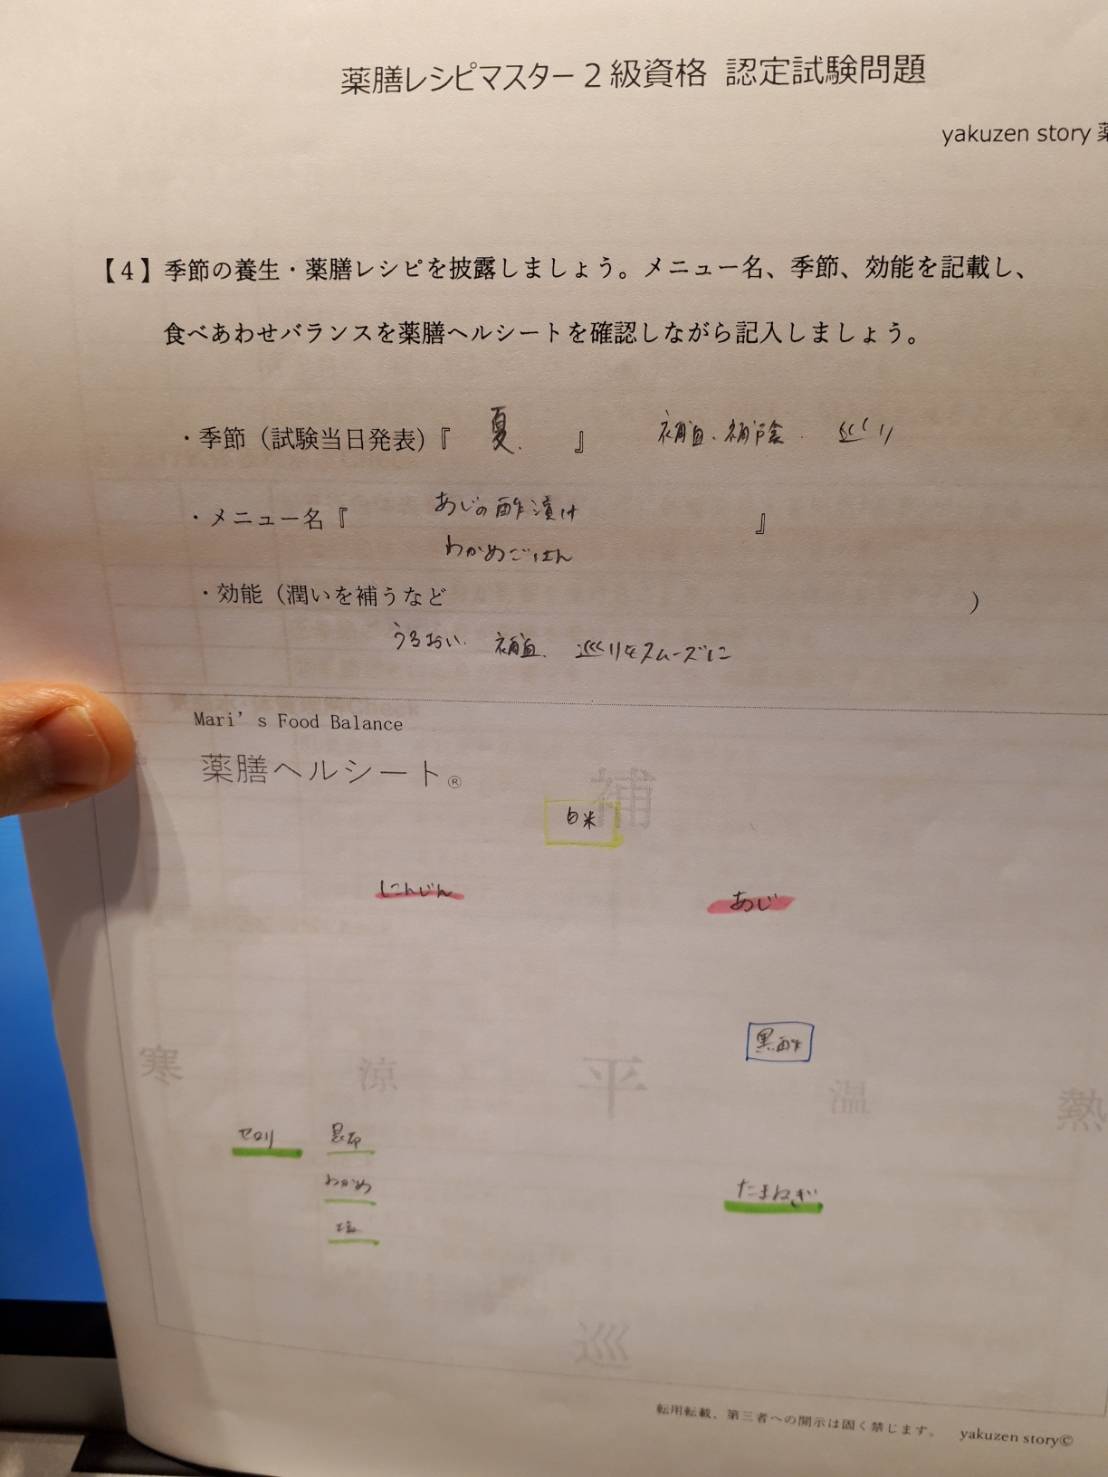 薬膳レシピマスター２級資格 認定試験問題
yakuzen story 薬
【４】季節の養生・薬膳レシピを披露しましょう。メニュー名、季節、効能を記載し、
食べあわせバランスを薬膳ヘルシートを確認しながら記入しましょう。
・季節（試験当日発表）『 夏. 』 補血、補陰、巡り
・メニュー名『 あじの酢漬け 』
わかめごはん
・効能（潤いを補うなど ）
うるおい、補血、巡りをスムーズに
Mari's Food Balance
薬膳ヘルシート®
補
白米
にんじん あじ
黒酢
寒 涼 平 温 熱
セロリ 昆布
わかめ たまねぎ
塩
巡
転用転載、第三者への開示は固く禁じます。 yakuzen story©